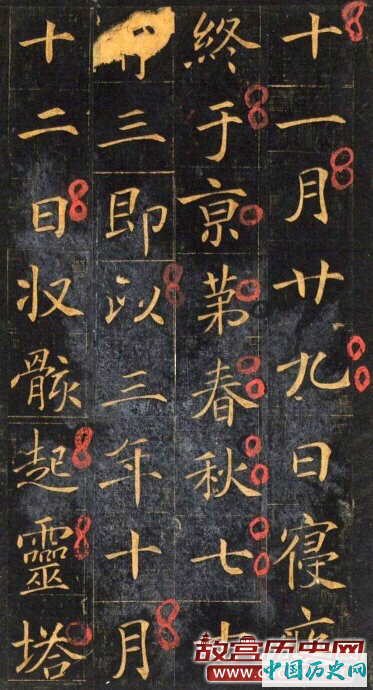 十一月廿九日寢疾
終于亰苐春秋七十
三即以三年十月
十二日収骸起靈塔
故宫历史网
中国历史网